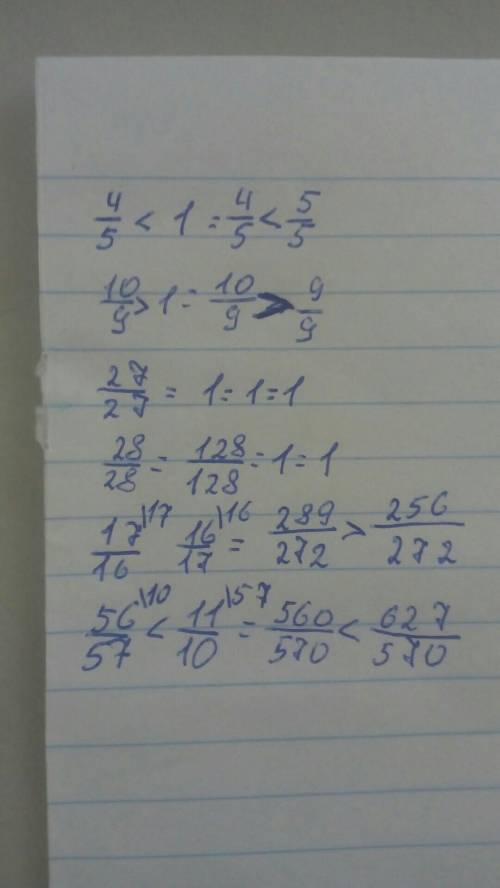 4/5 < 1 = 4/5 < 5/5
10/9 > 1 = 10/9 > 9/9
27/27 = 1 = 1 = 1
28/28 = 128/128 = 1 = 1
17/16 \17 16/17 \16 = 289/272 > 256/272
56/57 \10 < 11/10 \57 = 560/570 < 627/570